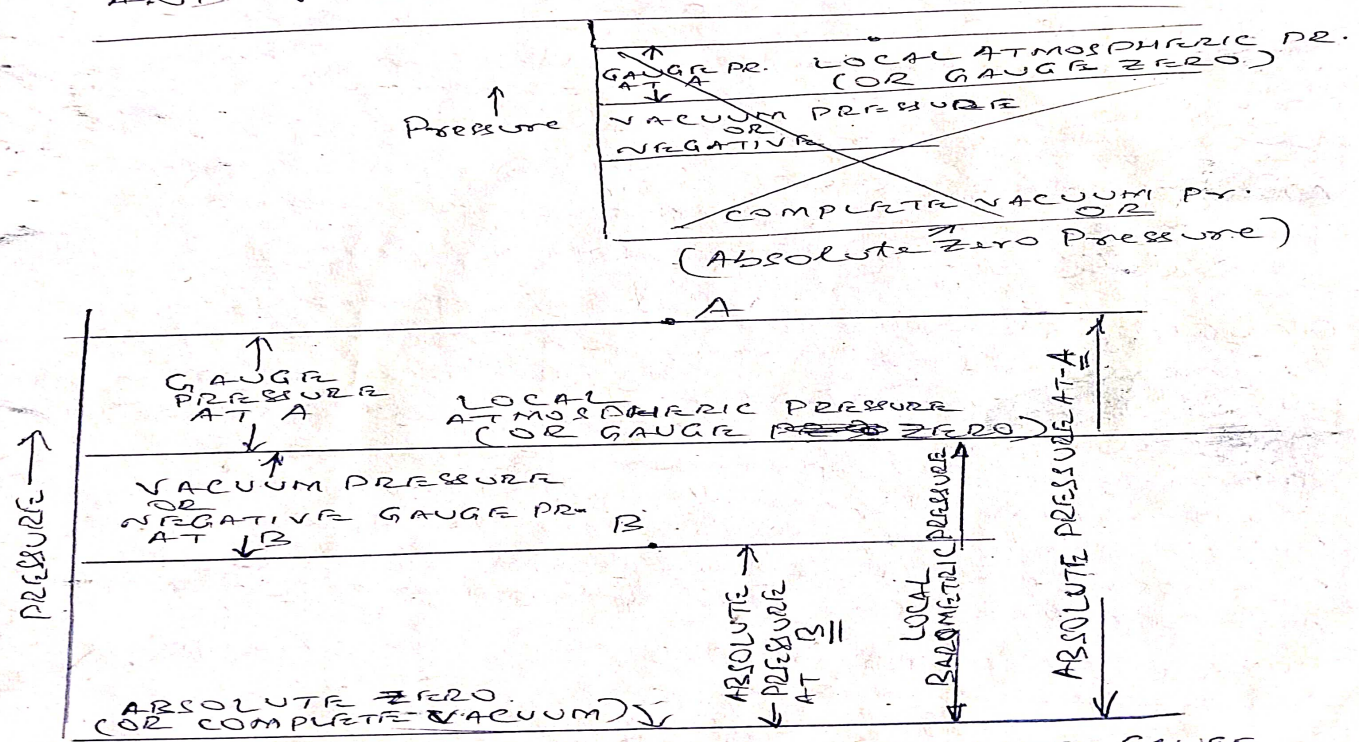 GAUGE PR.
AT A
LOCAL ATMOSPHERIC PR.
(OR GAUGE ZERO)
↑
Pressure
VACUUM PRESSURE
OR
NEGATIVE
COMPLETE VACUUM Pr.
OR
(Absolute Zero Pressure)
A
GAUGE
PRESSURE
AT A
LOCAL
ATMOSPHERIC PRESSURE
(OR GAUGE ZERO)
VACUUM PRESSURE
OR
NEGATIVE GAUGE PR.
AT B
B
PRESSURE →
ABSOLUTE
PRESSURE
AT B
LOCAL
BAROMETRIC PRESSURE
ABSOLUTE PRESSURE AT-A
ABSOLUTE ZERO
(OR COMPLETE VACUUM)